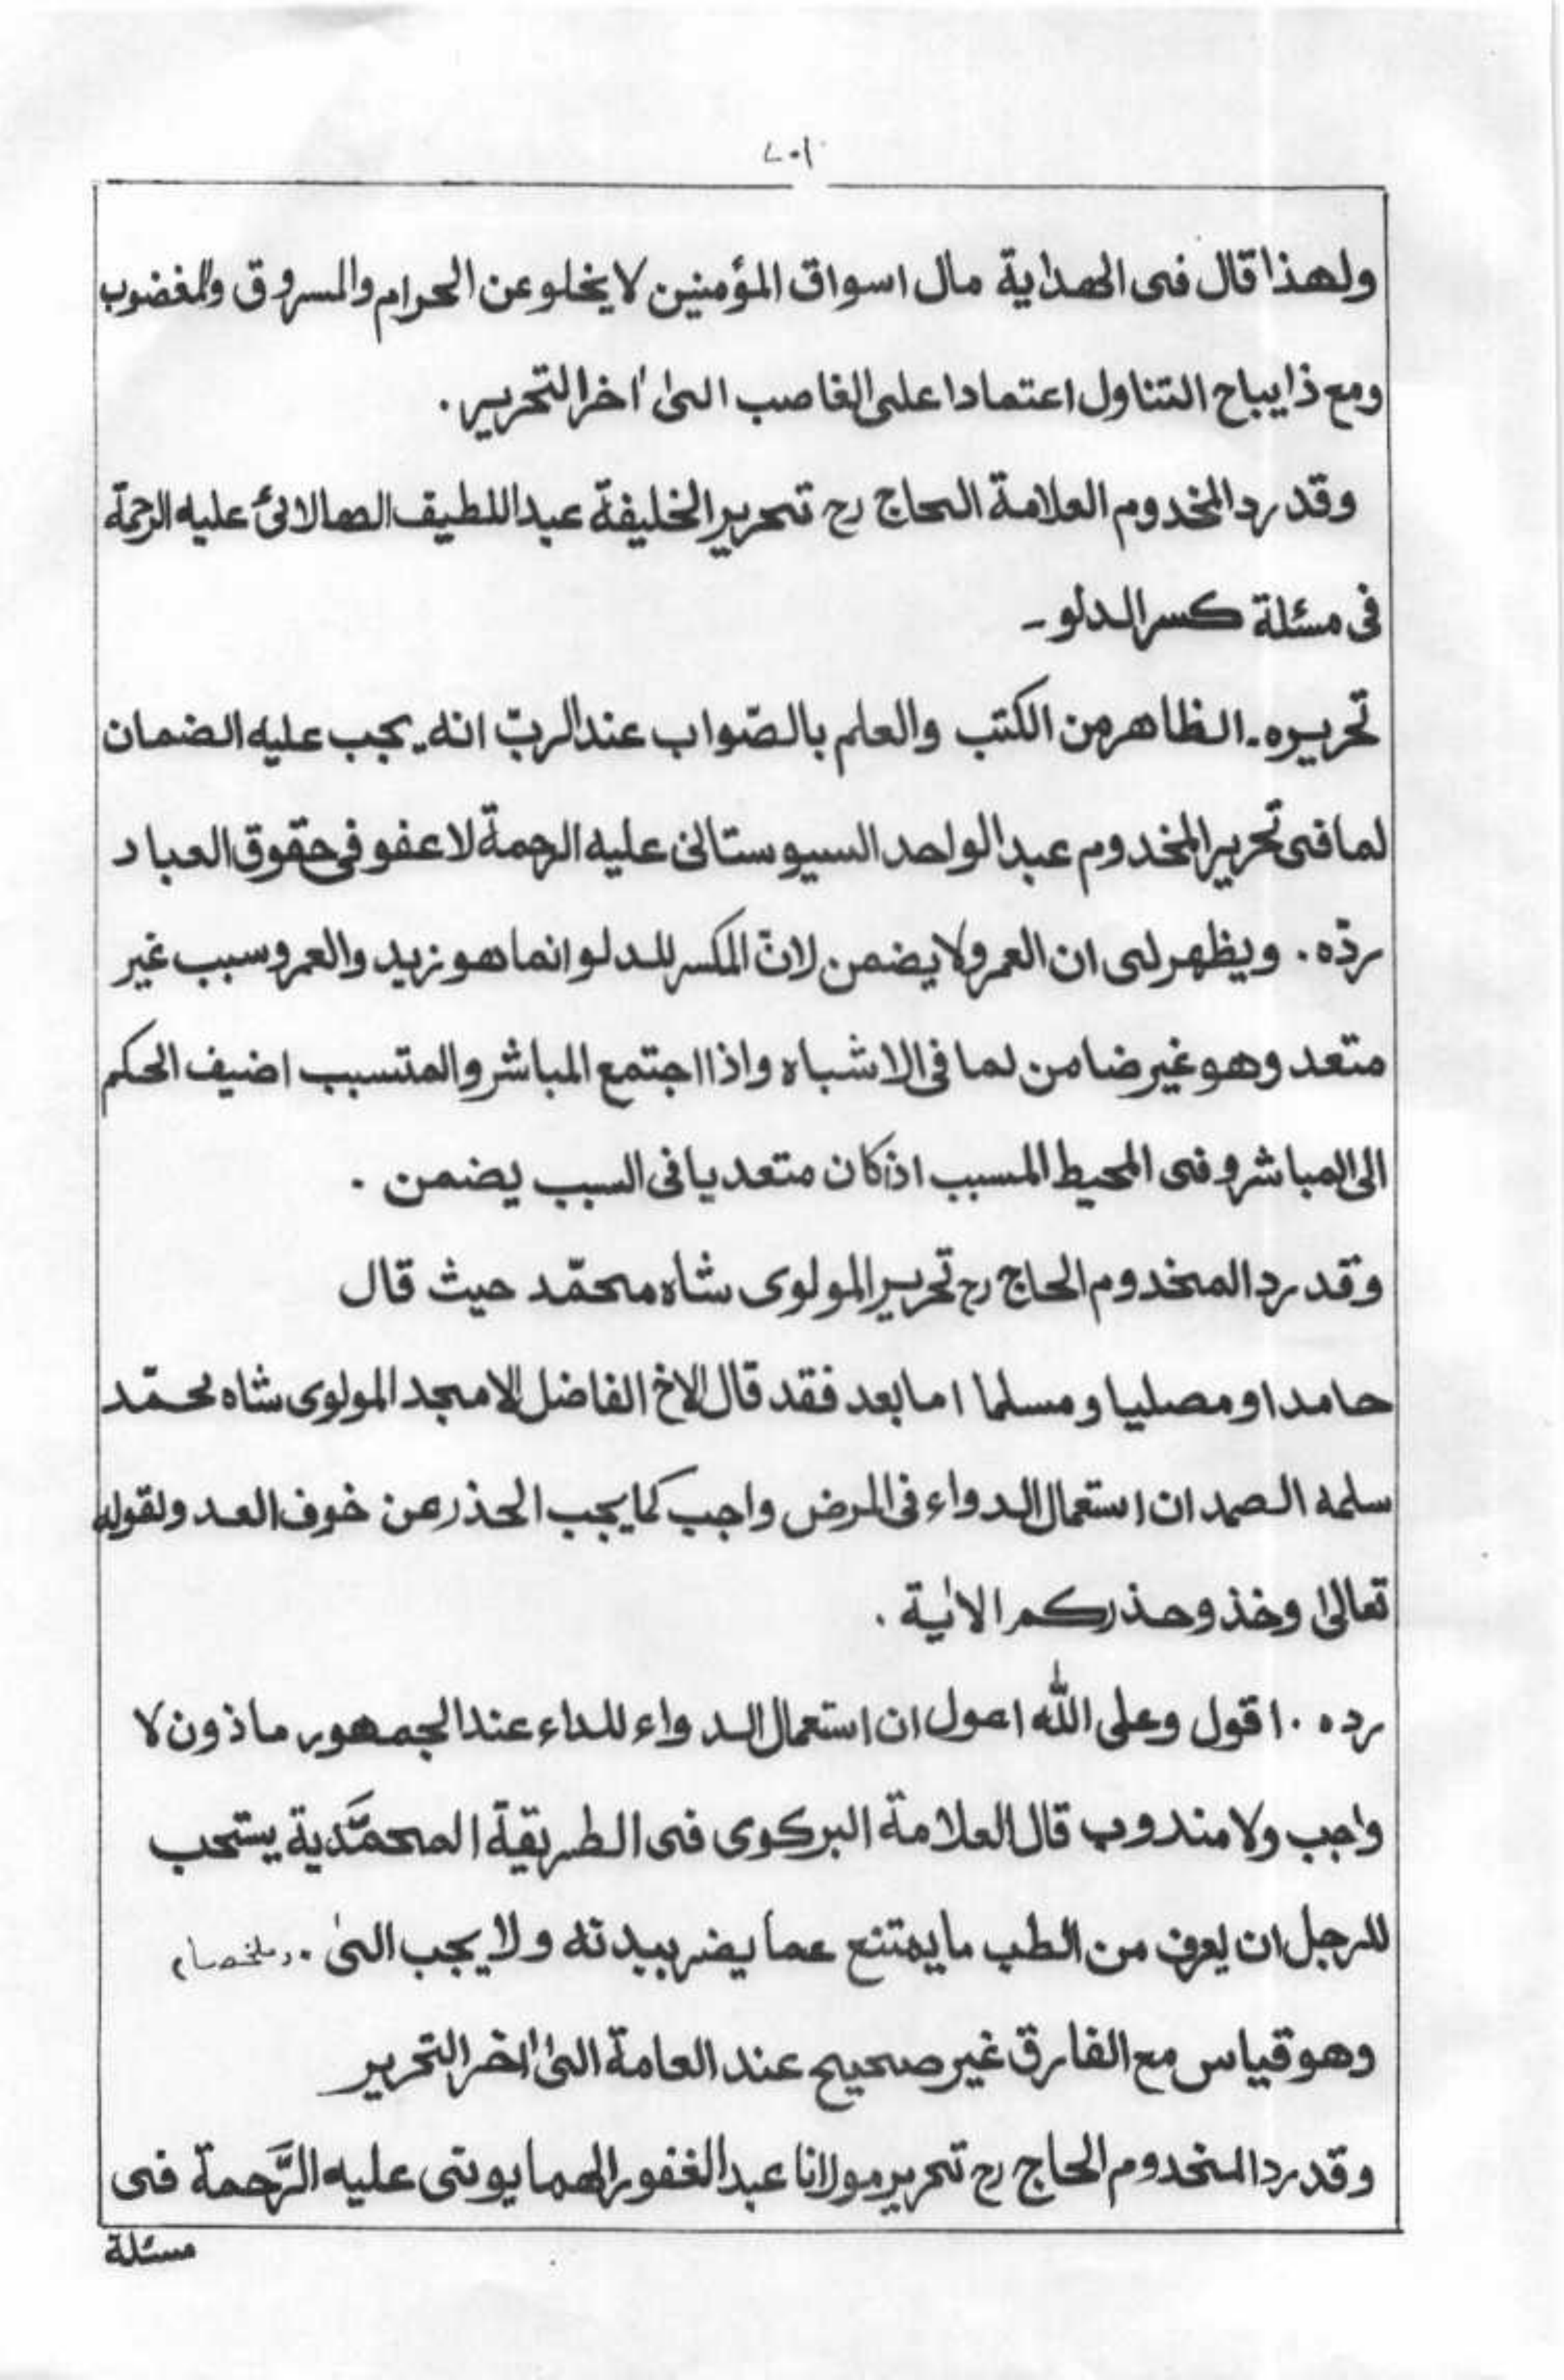 ٧٠١
ولهذا قال فى الهداية مال اسواق المؤمنين لا يخلو عن الحرام والمسروق والمغضوب
ومع ذا يباح التناول اعتمادا على الغاصب الىٰ اٰخر التحرير .
وقد رد المخدوم العلامة الحاج رح تحرير الخليفة عبد اللطيف الهالائى عليه الرحمة
فى مسئلة كسر الدلو ـ
تحريره ـ الظاهر من الكتب والعلم بالصّواب عند الربّ انه يجب عليه الضمان
لما فى تحرير المخدوم عبد الواحد السيوستانى عليه الرحمة لا عفو فى حقوق العباد
ردّه . ويظهر لى ان العمرو لا يضمن لانّ المكسر للدلو انما هو زيد والعمرو سبب غير
متعد وهو غير ضامن لما فى الاشباه واذا اجتمع المباشر والمتسبب اضيف الحكم
الى المباشر وفى المحيط المسبب اذ كان متعديا فى السبب يضمن .
وقد رد المخدوم الحاج رح تحرير المولوى شاه محمّد حيث قال
حامدا و مصليا و مسلما اما بعد فقد قال الاخ الفاضل الامجد المولوى شاه محمّد
سلمه الصمد ان استعمال الدواء فى المرض واجب كما يجب الحذر عن خوف العدو لقوله
تعالىٰ وخذوحذركم الاٰية .
رده . اقول وعلى اللّٰه اعول ان استعمال الدواء للداء عند الجمهور ماذون لا
واجب ولا مندوب قال العلامة البركوى فى الطريقة المحمَّدية يستحب
للرجل ان يعرف من الطب ما يمتنع عما يضر ببدنه ولا يجب الىٰ . (ملخصا)
وهو قياس مع الفارق غير صحيح عند العامة الىٰ اٰخر التحرير
وقد رد المخدوم الحاج رح تحرير مولانا عبد الغفور الهمايونى عليه الرَّحمة فى
مسئلة